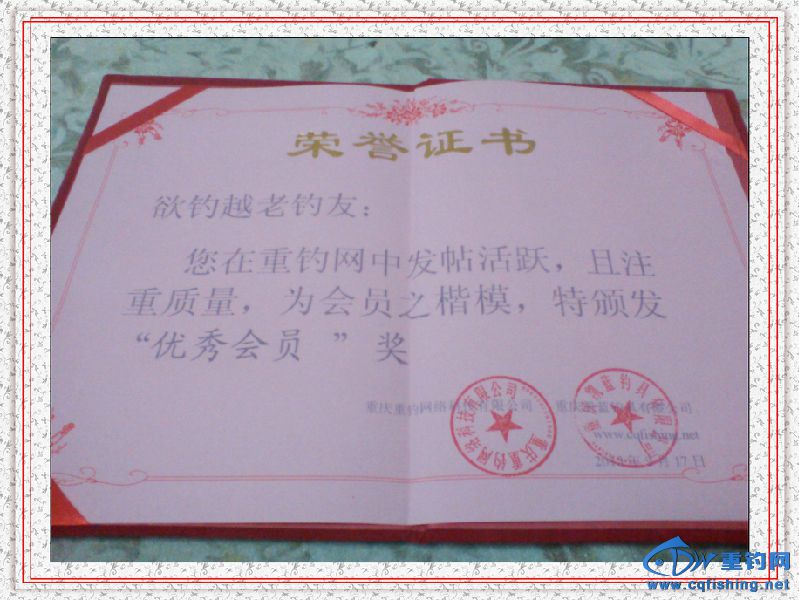 荣誉证书
欲钓越老钓友：
您在重钓网中发帖活跃，且注
重质量，为会员之楷模，特颁发
“优秀会员 ”奖
重庆重钓网络科技有限公司 重庆
有限公司
www.cqfishing.net
月17日
重庆重钓网络科技有限公司
重钓网
www.cqfishing.net